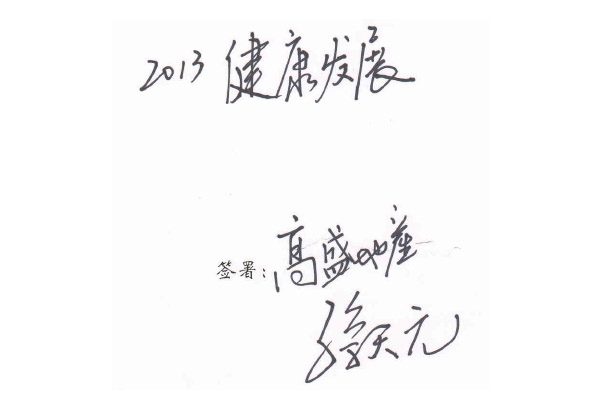 2013 健康发展
签署：高盛地产
天元